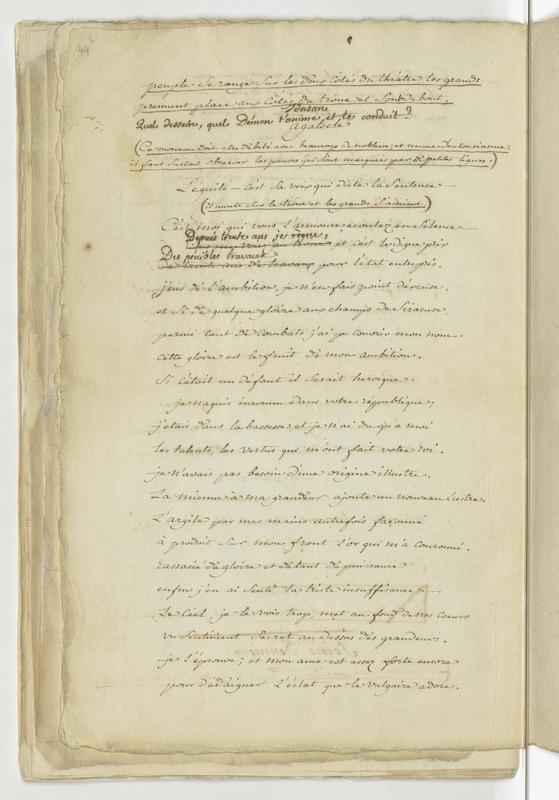 44
peuple se range sur les deux cotés du théatre les grands
prennent place aux cotés du trone et sont debout,
Idasan
Quel dessein, quel Démon t'anime et te conduit?
agatocle
(Ce morceau doit etre débité avec beaucoup de noblesse, et meme d'entousiasme,
il faut surtout observer les pauses qui sont marquées par de petites lignes.)
L'équité — c'est sa voix qui dicte la Sentence —
(il monte sur le trone et les grands s'asseient)
C'est moi qui vous l'annonce, écoutez en silence —
Depuis trente ans je règne,
au trone et c'est le digne prix
Des pénibles travaux
de trente ans de travaux pour l'état entrepris.
j'eus de l'ambition, je n'en fais point d'excuse.
et si de quelque gloire aux champs de Siracuse
parmi tant de combats j'ai pu couvrir mon nom,
cette gloire est le fruit de mon ambition.
Si c'était un défaut il serait heroique.
je naquis inconnu dans votre république,
j'etais dans la bassesse, et je n'ai du qu'a moi
les talents, les vertus qui m'ont fait votre roi.
je n'avais pas besoin d'une origine illustre.
La mienne à ma grandeur ajoute un nouveau Lustre.
L'argile par mes mains autrefois façonné
à produit sur mon front l'or qui m'a couronné.
rassasié de gloire et de tant de puissance
enfin j'en ai senti la triste insuffisance —
Le Ciel, je le vois trop, met au fond de nos coeurs
un Sentiment Secret au dessus des grandeurs.
je l'éprouve; et mon ame est assez forte encore
pour dédaigner l'éclat que le vulgaire adore.